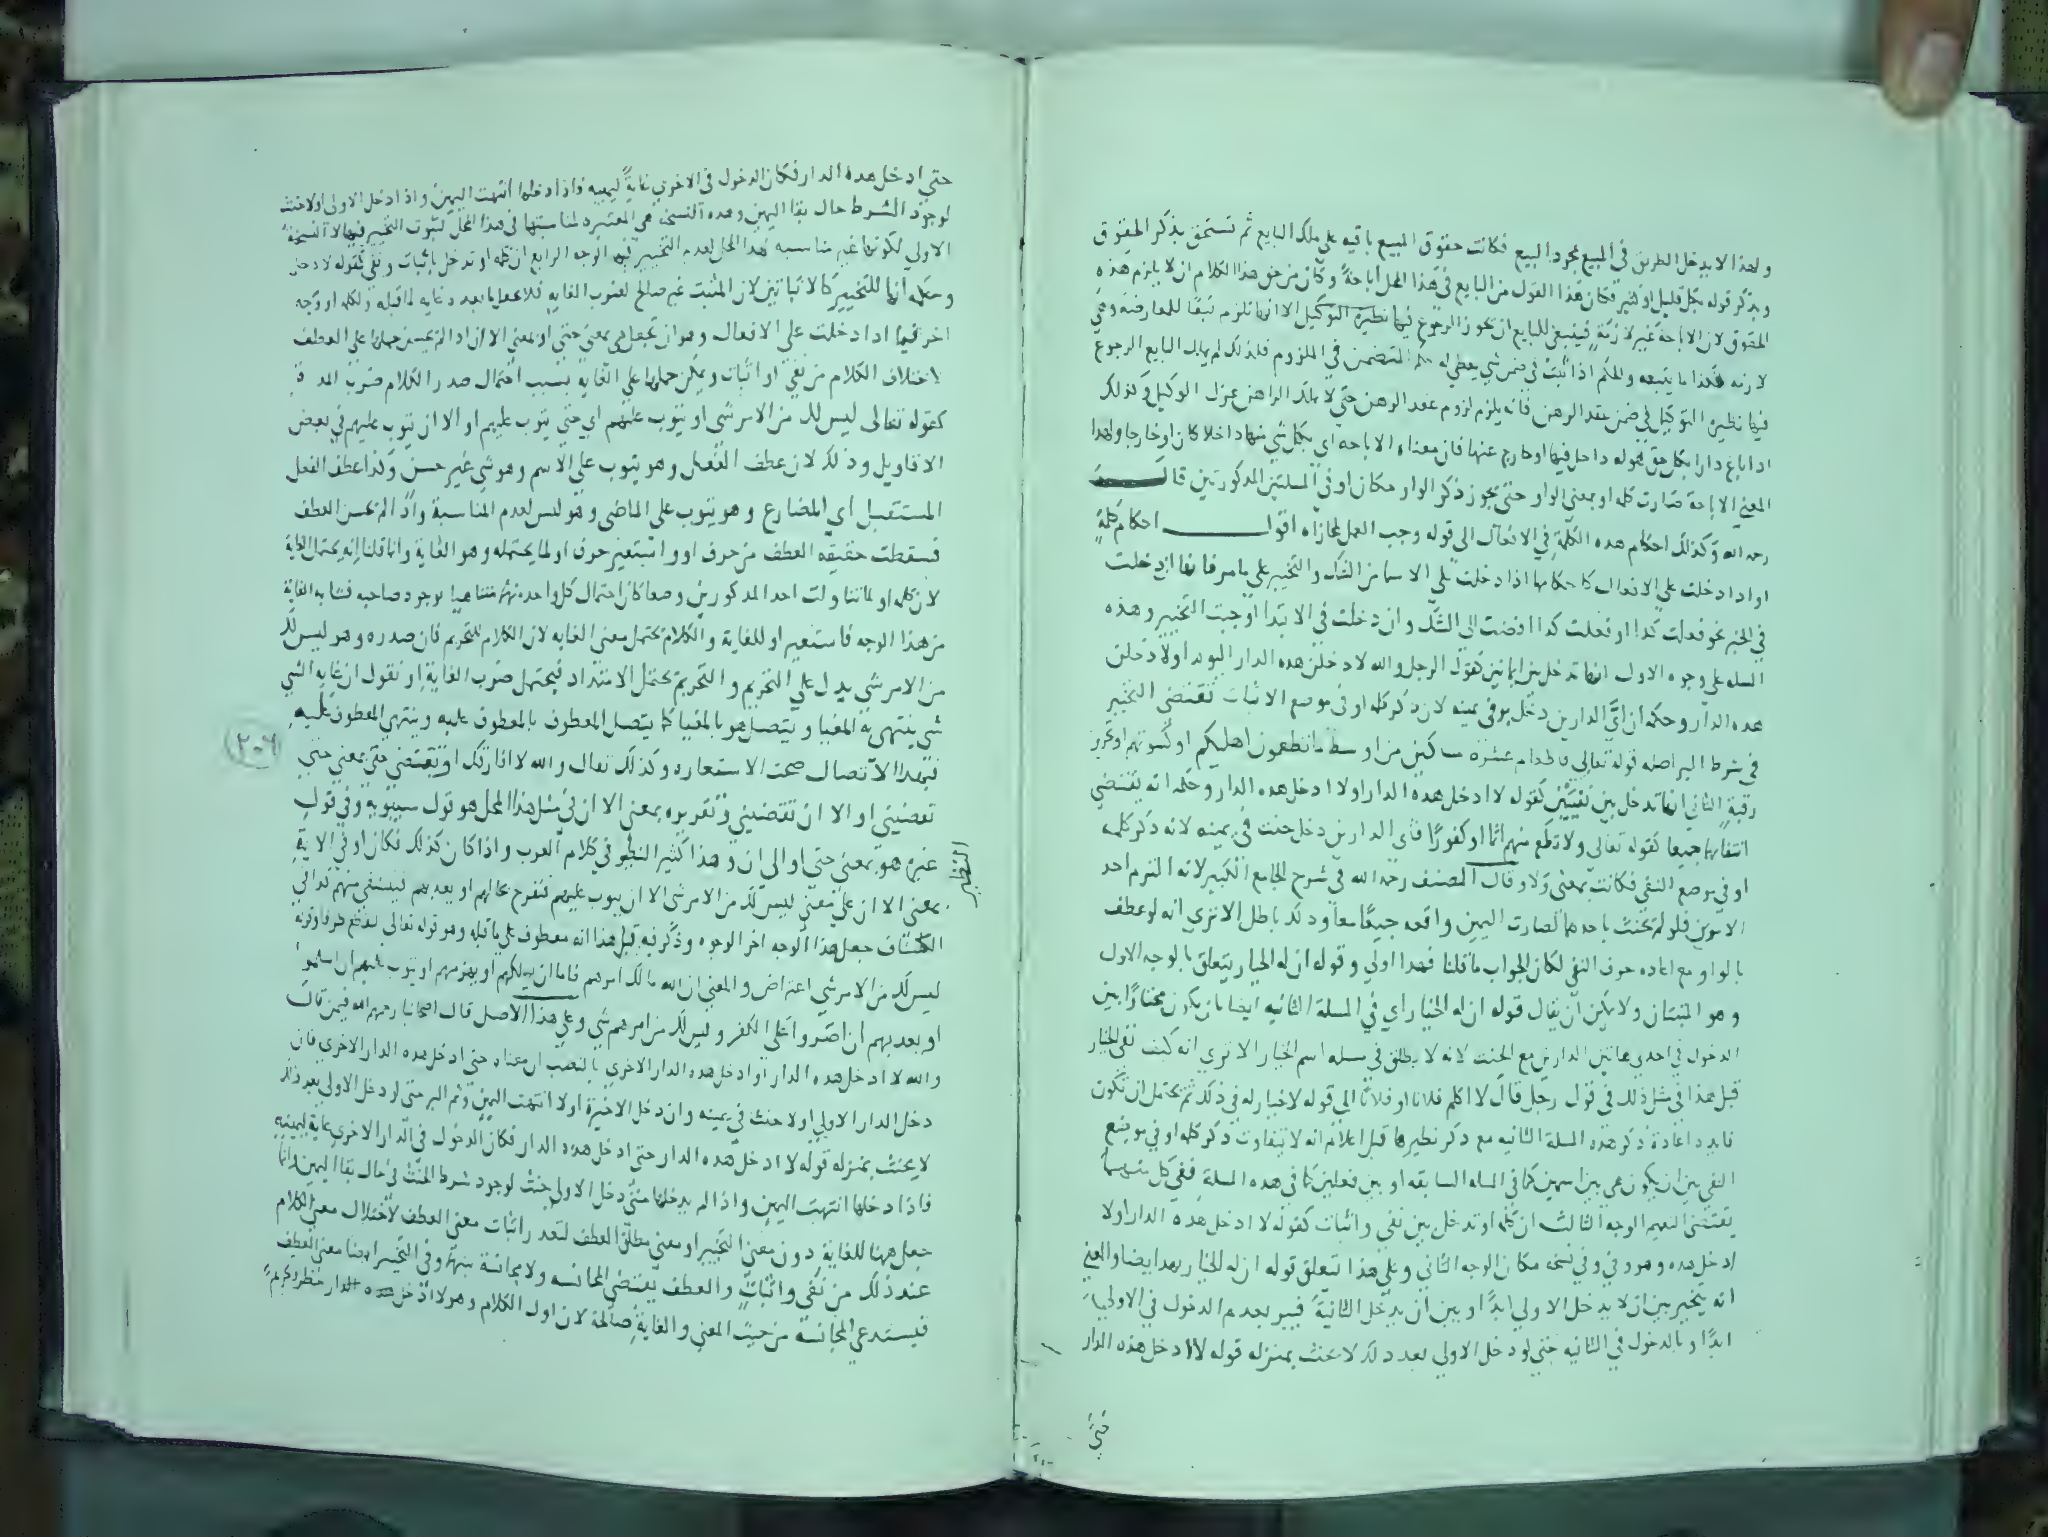 ولهذا لا يدخل الطريق في المبيع بمجرد البيع فكانت حقوق المبيع باقيه على ملك البايع ثم تستحق بذكر الحقوق
وبذكر قوله بكل قليل او كثير فكان هذا القول من البايع في هذا المحل اباحةً وكان من حق هذا الكلام ان لا يلزم هذه
الحقوق لان الاباحة غير لازمة فينبغي للبايع ان يجوز الرجوع فيها نظيره التوكيل الا انها تلزم تبعًا للمعارضه وهي
لازمه فكذا ما يتبعه والحكم اذا ثبت في ضمن شي يعطى له حكم المتضمن في الملزوم فلذلك لم يملك البايع الرجوع
فيها نظيره التوكيل في ضمن عقد الرهن فانه يلزم لزوم عقد الرهن حتى لا يملك الراهن عزل الوكيل وكذلك
اذا باع دارا بكل حق هو له داخل فيها او خارج عنها فان معناه الاباحه اي بكل شي منها داخلا كان او خارجا ولهذا
المعنى الاباحة صارت كلمه او بمعنى الواو حتى يجوز ذكر الواو مكان او في المسلتين المذكورتين قال
رحمه الله وكذلك احكام هذه الكلمة في الافعال الى قوله وجب العمل بمجازه اقول احكام كلمة
او اذا دخلت على الافعال كاحكامها اذا دخلت على الاسما من الشك والتخيير على ما مر فانها ان دخلت
في الخبر نحو فعلت كذا او فعلت كذا افضت الى الشك وان دخلت في الابتدا اوجبت التخيير وهذه
المسله على وجوه الاول انها تدخل بين اثباتين كقول الرجل والله لادخلن هذه الدار اليوم او لادخلن
هذه الدار وحكمه ان ايّ الدارين دخل بر في يمينه لان ذكر كلمه او في موضع الاثبات تقتضي التخيير
في شرط البر اصله قوله تعالى فاطعام عشرة مساكين من اوسط ما تطعمون اهليكم او كسوتهم او تحرير
رقبةٍ الثاني انها تدخل بين نفيين كقوله لا ادخل هذه الدار او لا ادخل هذه الدار وحكمه انه يقتضي
انتفاهما جميعا كقوله تعالى ولا تطع منهم اثمًا او كفورًا فاى الدارين دخل حنث في يمينه لانه ذكر كلمه
او في موضع النفي فكانت بمعنى ولا وقال المصنف رحمه الله في شرح الجامع الكبير لانه التزم احد
الامرين فلو لم يحنث باحدهما لصارت اليمين واقعه جميعًا معًا وذلك باطل الا ترى انه لو عطف
بالواو مع اعاده حرف النفي لكان الجواب ما قلنا فهذا اولى وقوله ان له الخيار يتعلق بالوجه الاول
وهو المثبتان ولا يمكن ان يقال قوله ان له الخيار اي في المسلة الثانيه ايضا بان يكون مختارًا بين
الدخول في احدى هاتين الدارين مع الحنث لانه لا يطلق في مسله اسم الخيار الا ترى انه كيف نفى الخيار
قبل هذا في مثل ذلك في قول رجل قال لا اكلم فلانا او فلانًا الى قوله لا خيار له في ذلك ثم يحتمل ان تكون
فايده اعادة ذكر هذه المسلة الثانيه مع ذكر نظيرها قبل اعلام انه لا تتفاوت ذكر كلمه او في موضع
النفي بين ان يكون هي بين اسمين كما في المسله السابقه او بين فعلين كما في هذه المسلة ففي كل منهما
يقتضى التعميم الوجه الثالث ان كلمه او تدخل بين نفي واثبات كقوله لا ادخل هذه الدار او لا
ادخل هذه وهو وفي نسخه مكان الوجه الثاني وعلى هذا تتعلق قوله ان له الخيار بهذا ايضا والمعني
انه يخير بين ان لا يدخل الاولى ابدًا وبين ان يدخل الثانية فيبر بعدم الدخول في الاولى
ابدًا وبالدخول في الثانيه حتى لو دخل الاولى بعد ذلك لا يحنث بمنزله قوله لا ادخل هذه الدار
حتى
حتى ادخل هذه الدار فكان الدخول في الاخرى غايةً ليمينه فاذا دخلها انتهت اليمين واذا دخل الاولى اولا حنث
لوجود الشرط حال بقا اليمين وهذه النسخه هي المعتبره لمناسبتها في هذا المحل لثبوت التخيير فيها لا النسخة
الاولى لكونها غير مناسبه لهذا المحل لعدم التخيير فيها الوجه الرابع ان كلمه او تدخل باثبات ونفي كقوله لادخل
وحكمه انها للتخيير كالاثباتين لان المثبت غير صالح لضرب الغايه فلا يجعل ما بعده غايه لما قبله ولكلمه او وجه
اخر فيما اذا دخلت على الافعال وهو ان تجعل او بمعنى حتى او بمعنى الا ان اذا لم يحسن حملها على العطف
لاختلاف الكلام من نفي او اثبات ويمكن حملها على الغاية بسبب احتمال صدر الكلام ضرب المده
كقوله تعالى ليس لك من الامر شى او يتوب عليهم اي حتى يتوب عليهم او الا ان يتوب عليهم في بعض
الاقاويل وذلك لان عطف الفعل وهو يتوب على الاسم وهو شي غير حسن وكذا عطف الفعل
المستقبل اي المضارع وهو يتوب على الماضى وهو ليس لعدم المناسبة واذا لم يحسن العطف
فسقطت حقيقه العطف من حرف او واستعير حرف او لما يحتمله وهو الغاية وانما قلنا انه يحتمل الغاية
لان كلمه او لما تناولت احد المذكورين وضعا كان احتمال كل واحده منهما متناهيا بوجود صاحبه فشابه الغاية
من هذا الوجه فاستعير او للغاية والكلام يحتمل معنى الغايه لان الكلام للتحريم فان صدره وهو ليس لك
من الامر شي يدل على التحريم والتحريم يحتمل الامتداد فيحتمل ضرب الغاية او نقول ان غايه الشي
شي ينتهي به المغيا ويتصل هو بالمغيا كما يتصل المعطوف بالمعطوف عليه وينتهي المعطوف عليه
فبهذا الاتصال صحت الاستعاره وكذلك يقال والله لا افارقك او تقتضي حقي بمعنى حتى
تقضيني او الا ان تقضيني وتقريره بمعنى الا ان في مثل هذا المحل هو قول سيبويه وفي قول
غيره هو بمعنى حتى او الى ان وهذا كثير النظير في كلام العرب واذا كان كذلك فكان او في الاية
النظير
بمعنى الا ان على معنى ليس لك من الامر شى الا ان يتوب عليهم فتفرح بحالهم او يعذبهم فيتشفى منهم كذا في
الكشاف جعل هذا الوجه اخر الوجوه وذكر فيه قبل هذا انه معطوف على ما قبله وهو قوله تعالى ليقطع طرفا وقوله
ليس لك من الامر شي اعتراض والمعنى ان الله مالك امرهم فاما ان يهلكهم او يهزمهم او يتوب عليهم ان اسلموا
او يعذبهم ان اصروا على الكفر وليس لك من امرهم شي وعلى هذا الاصل قال اصحابنا رحمهم الله فيمن قال
والله لا ادخل هذه الدار او ادخل هذه الدار الاخرى بالنصب ان معناه حتى ادخل هذه الدار الاخرى فان
دخل الدار الاولى اولا حنث في يمينه وان دخل الاخيرة اولا انتهت اليمين وتم البر حتى لو دخل الاولى بعد ذلك
لا يحنث بمنزله قوله لا ادخل هذه الدار حتى ادخل هذه الدار فكان الدخول في الدار الاخرى غاية ليمينه
فاذا دخلها انتهت اليمين واذا لم يدخلها حتى دخل الاولى حنث لوجود شرط الحنث في حال بقا اليمين وانما
جعل ههنا للغاية دون معنى التخيير او معنى مطلق العطف لتعذر اثبات معنى العطف لاختلال معنى الكلام
عند ذلك من نفى واثبات والعطف يقتضي المجانسه ولا مجانسة بينهما وفي التخيير ايضا معنى العطف
فيستدعي المجانسة من حيث المعنى والغاية صالحة لان اول الكلام وهو لا ادخل هذه الدار حظر وتحريم
(٢٠٦)